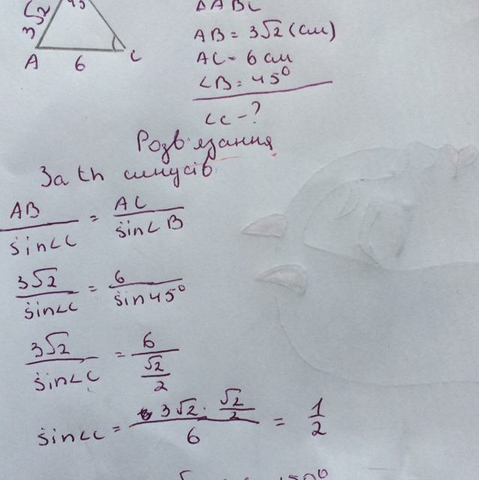 Δ ABC
45
3√2
AB = 3√2 (см)
A 6 C
AC = 6 см
∠B = 45°
∠C - ?
Розв'язання
За th синусів
AB / sin∠C = AC / sin∠B
3√2 / sin∠C = 6 / sin45°
3√2 / sin∠C = 6 / (√2 / 2)
sin∠C = 3√2 · √2/2 / 6 = 1/2